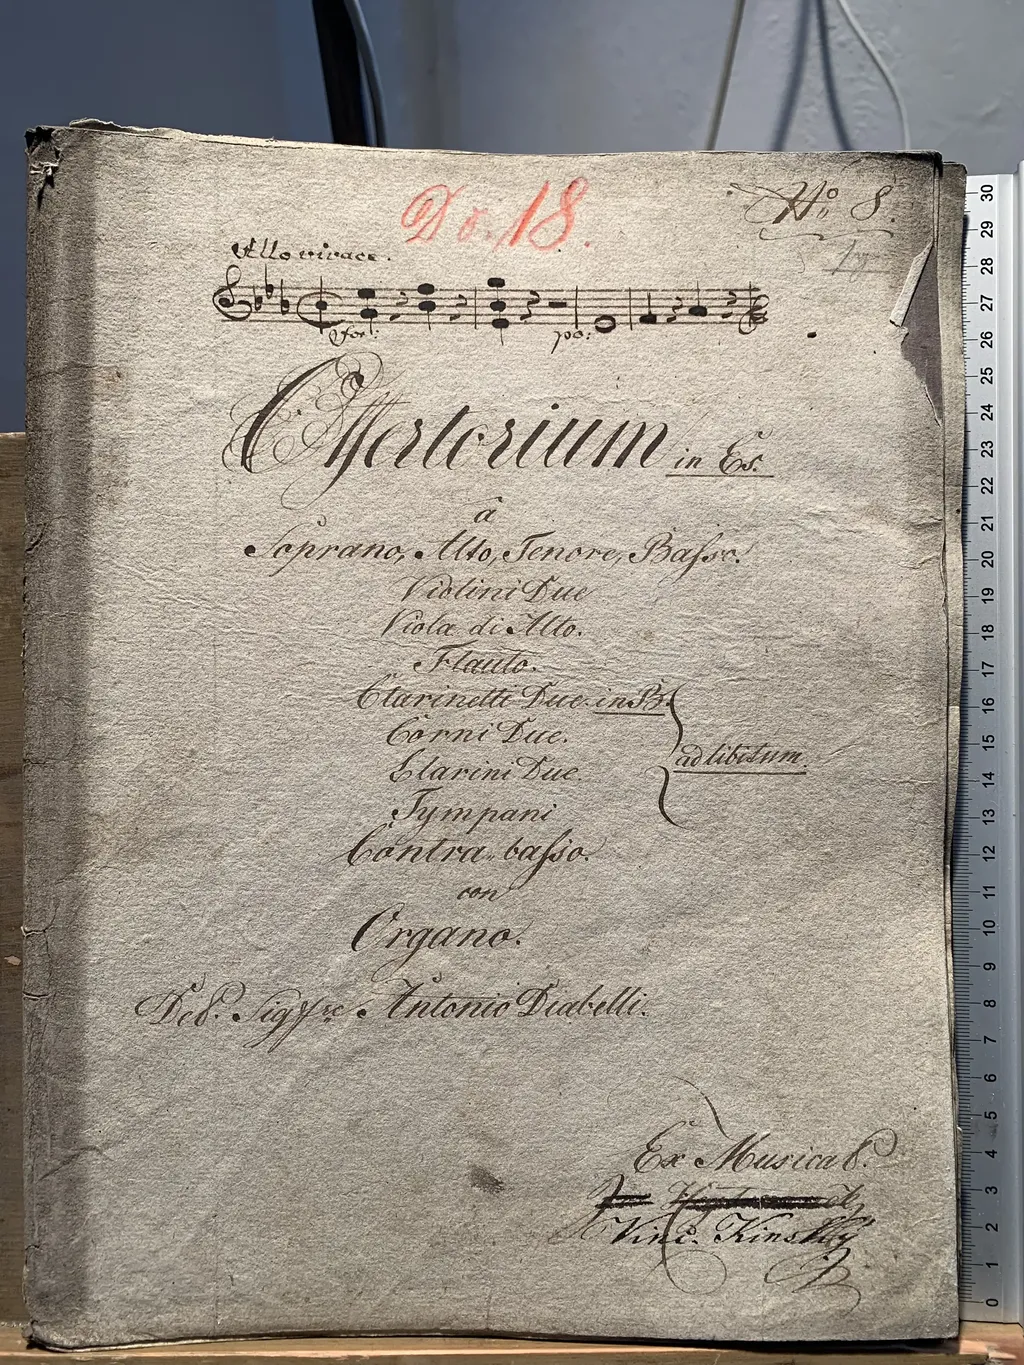 Do. 18.
No. 8.
Allo vivace.
for:
po:
Offertorium in Es.
a
Soprano, Alto, Tenore, Basso.
Violini Due
Viola di Alto.
Flauto.
Clarinetti Due in B.
Corni Due.
Clarini Due.
ad libitum.
Tympani
Contra-basso.
con
Organo.
Del. Sigre Antonio Diabelli.
Ex Musical.
Vinc. Kinsky
30
29
28
27
26
25
24
23
22
21
20
19
18
17
16
15
14
13
12
11
10
9
8
7
6
5
4
3
2
1
0